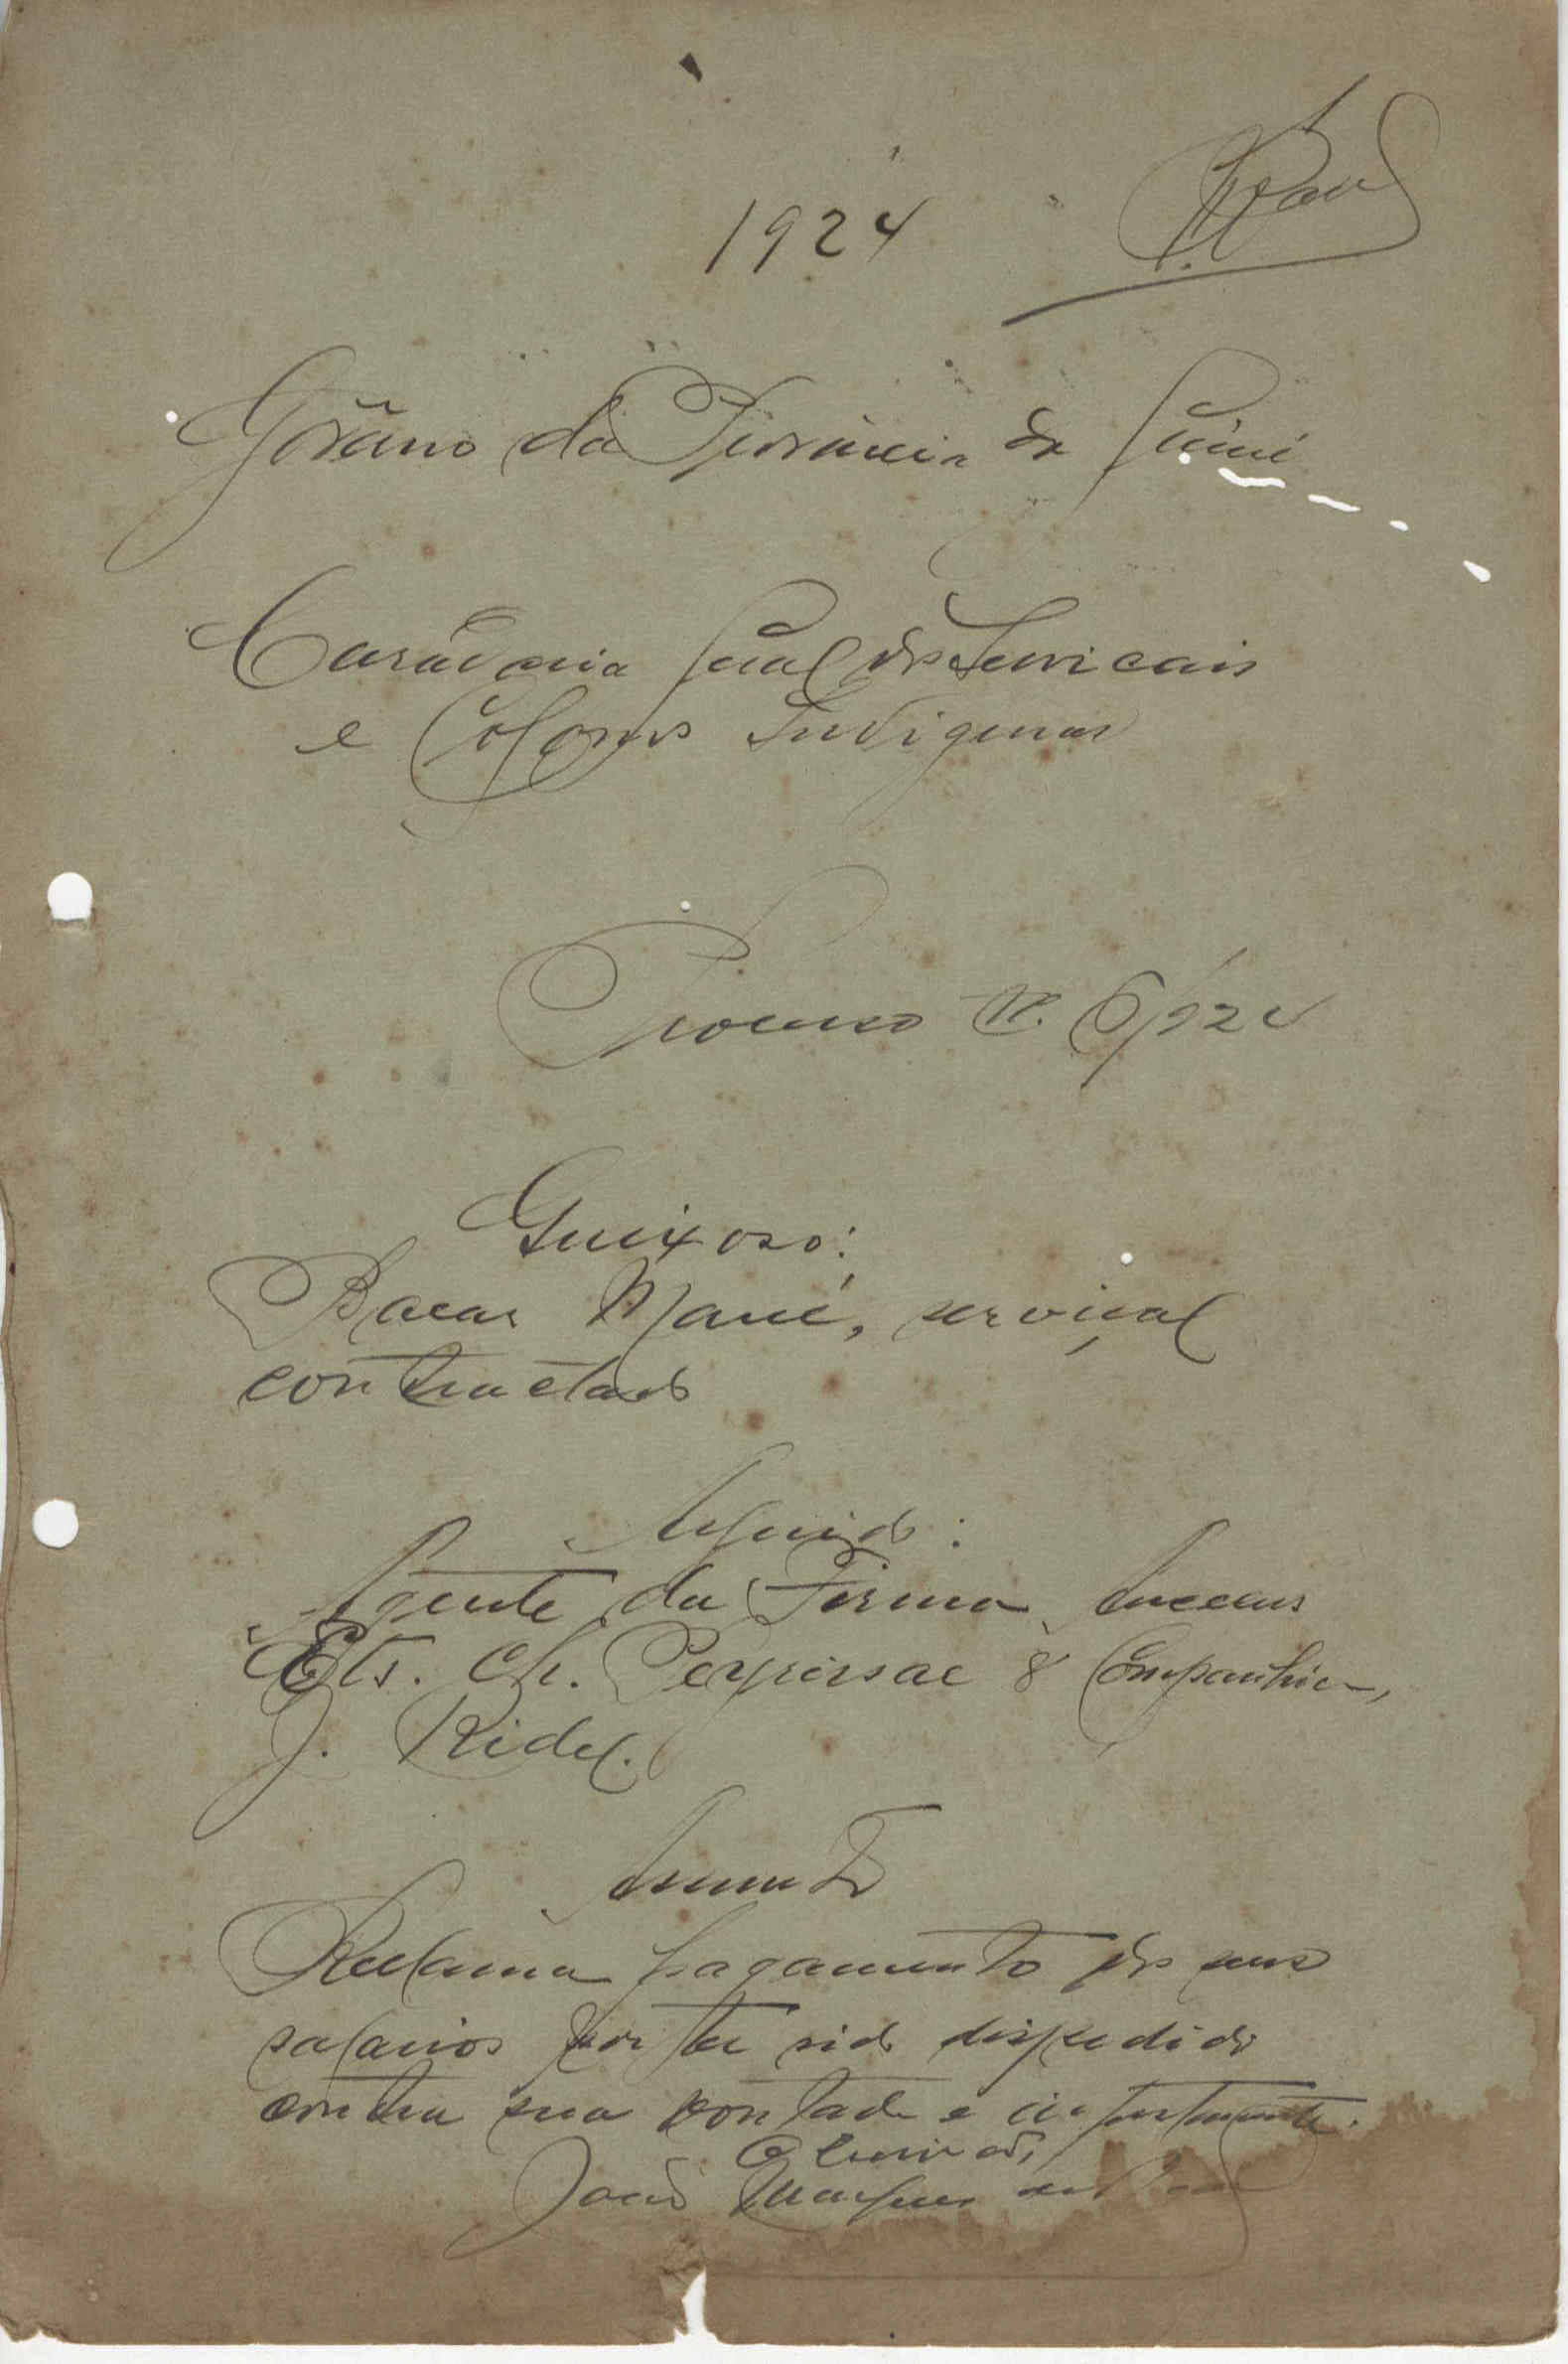 1924
Govêrno da Provincia da Guiné
Curadoria Geral dos Serviçais
e Colonos Indigenas
Processo Nº. 6/924
Queixoso:
Bacar Mané, serviçal
contractado
Arguido:
Agente da Firma
Ets. Ch. Peyrissac & Companhia,
J. Ridel.
Assunto
Reclama pagamento dos seus
salarios por ter sido despedido
contra sua vontade e injustamente.
O Escrivão,
João Marques